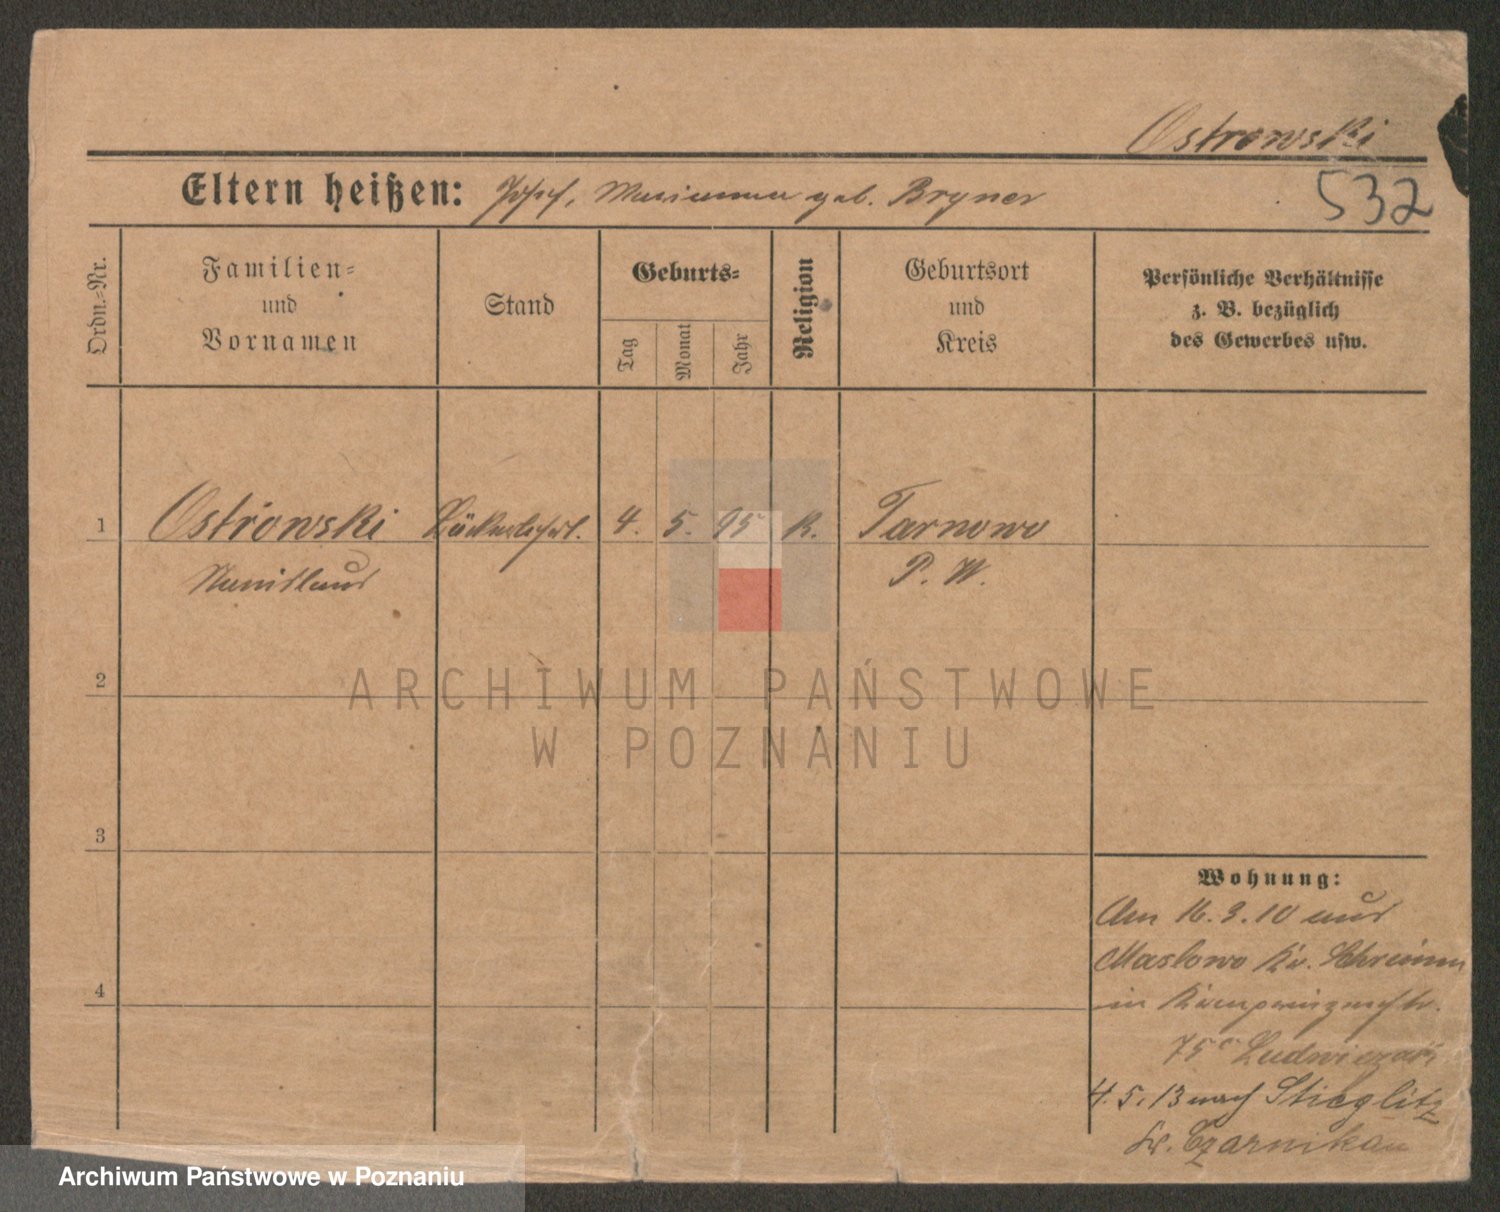 Ostrowski
Eltern heißen: Josef, Marianna geb. Bryner
532
Ordn.-Nr.
Familien-
und
Vornamen
Stand
Geburts-
Tag
Monat
Jahr
Religion
Geburtsort
und
Kreis
Persönliche Verhältnisse
z. B. bezüglich
des Gewerbes usw.
1 Ostrowski Bäckerlehrl. 4. 5. 95 K. Tarnowo
Stanislaus P. W.
2
3
4
ARCHIWUM PAŃSTWOWE
W POZNANIU
Wohnung:
Am 16.3.10 aus
Maslowo Kr. Schrimm
in Kronprinzenstr.
75 Ludwiczak
4.5.13 nach Stieglitz
Kr. Czarnikau
Archiwum Państwowe w Poznaniu